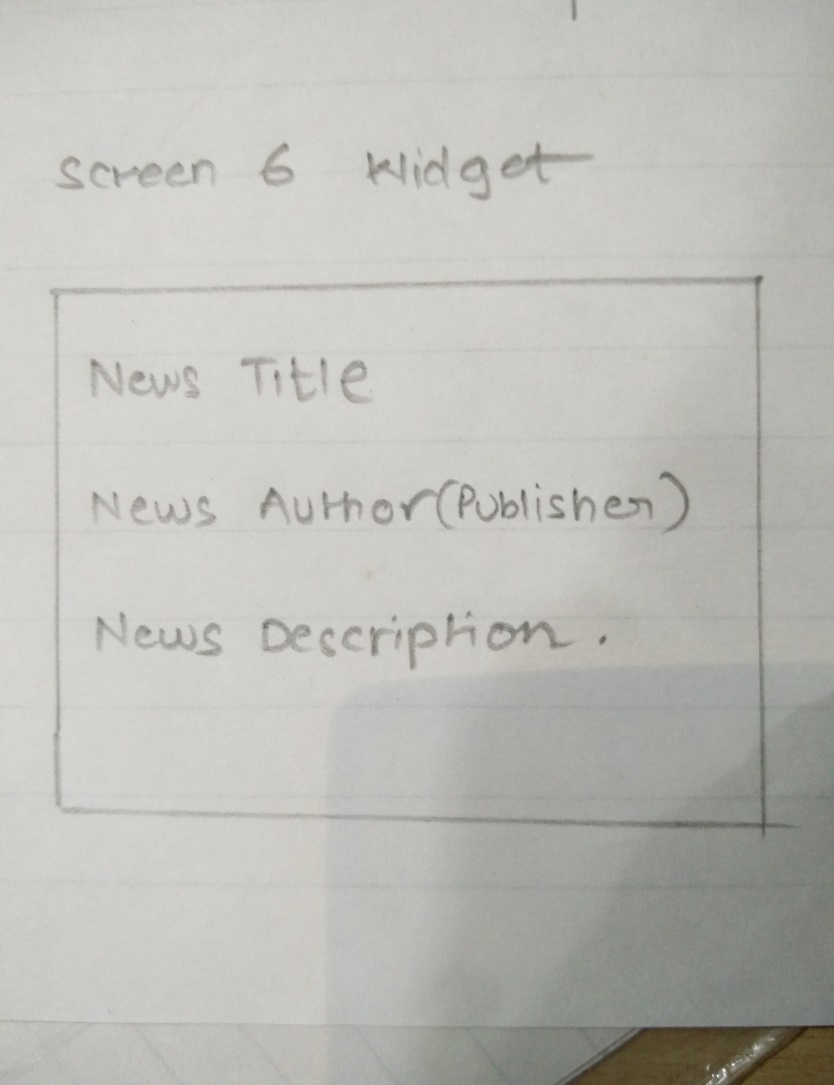 Screen 6 Widget
News Title
News Author(Publisher)
News Description.